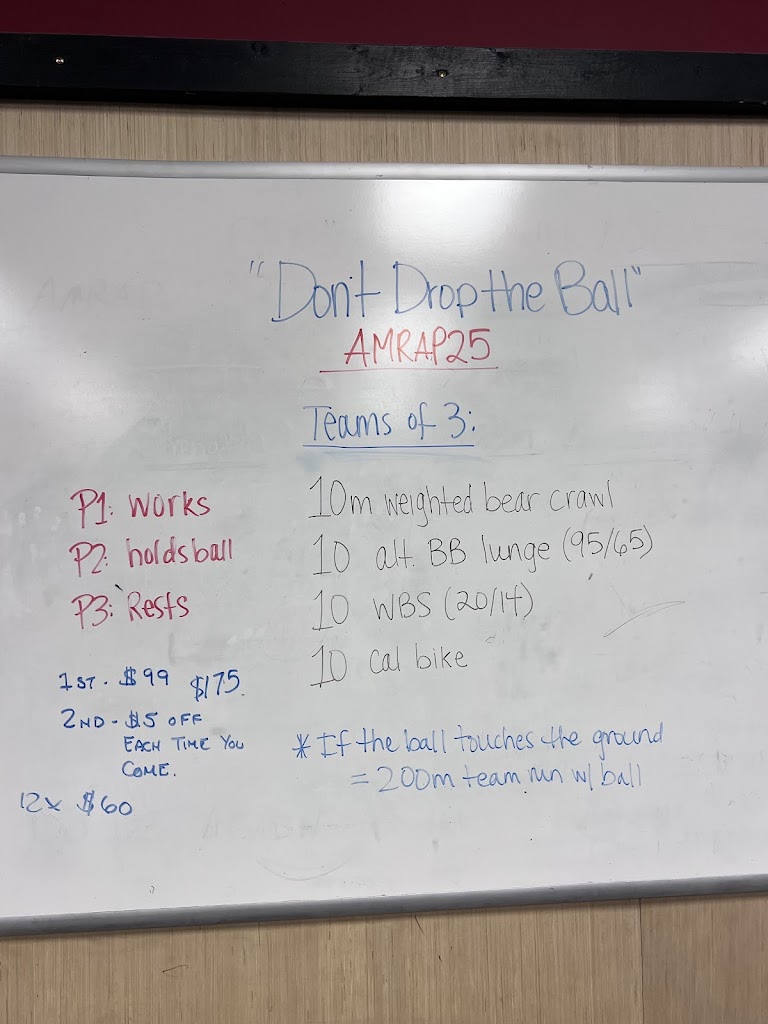 "Don't Drop the Ball"
AMRAP25
Teams of 3:
P1: works
P2: holds ball
P3: Rests
10m weighted bear crawl
10 alt. BB lunge (95/65)
10 WBS (20/14)
10 cal bike
* If the ball touches the ground
= 200m team run w/ ball
1ST - $99 $175.
2ND - $5 OFF
EACH TIME YOU
COME.
12x $60